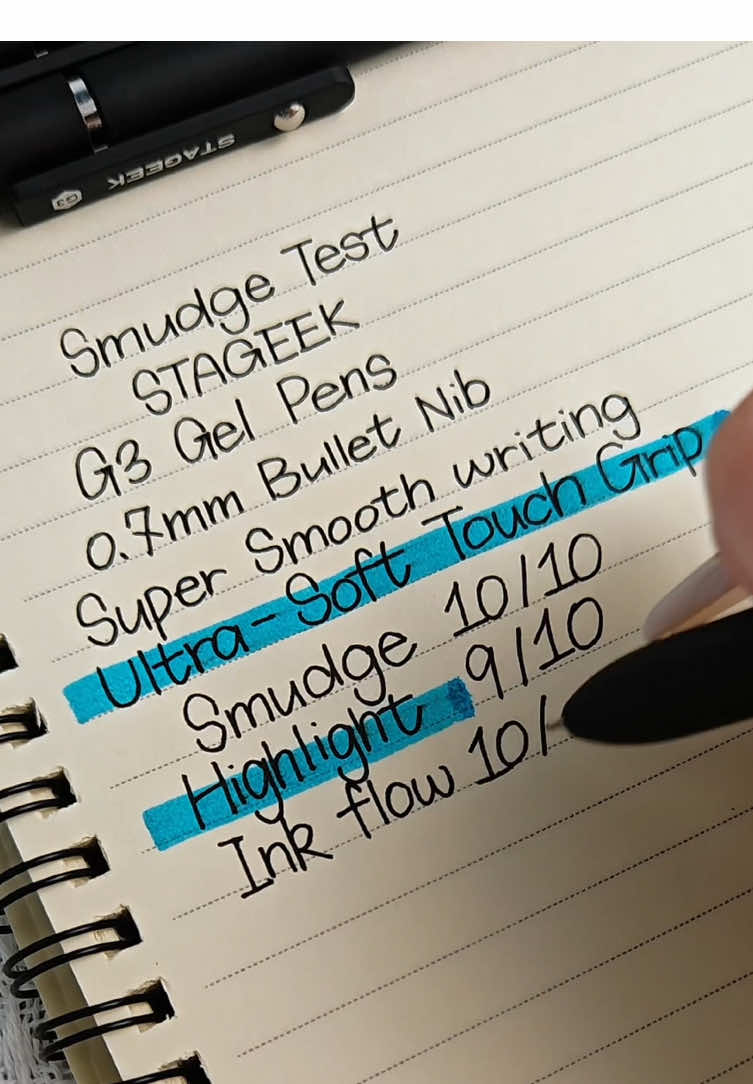 STAGEEK
G3
Smudge Test
STAGEEK
G3 Gel Pens
0.7mm Bullet Nib
Super Smooth writing
Ultra-Soft Touch Grip
Smudge 10/10
Highlight 9/10
Ink flow 10/